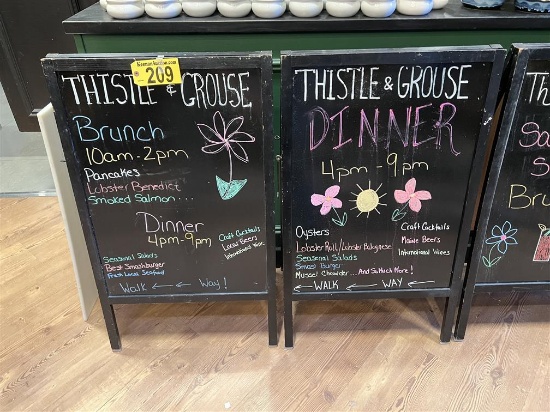 THISTLE & GROUSE
209
Brunch
10am-2pm
Pancakes
Lobster Benedict
Smoked Salmon...
Dinner
4pm-9pm
Craft Cocktails
Local Beers
International Wine
Seasonal Salads
Best Smashburger
Fresh Local Seafood
← Walk ← ← Way!
THISTLE & GROUSE
DINNER
4pm 9pm
Oysters
Lobster Roll/Lobster Bolognese
Seasonal Salads
Smash Burger
Mussel Chowder...And So Much More!
Craft Cocktails
Maine Beers
International Wines
← WALK ← WAY ←
Th
Sa
S
Bru